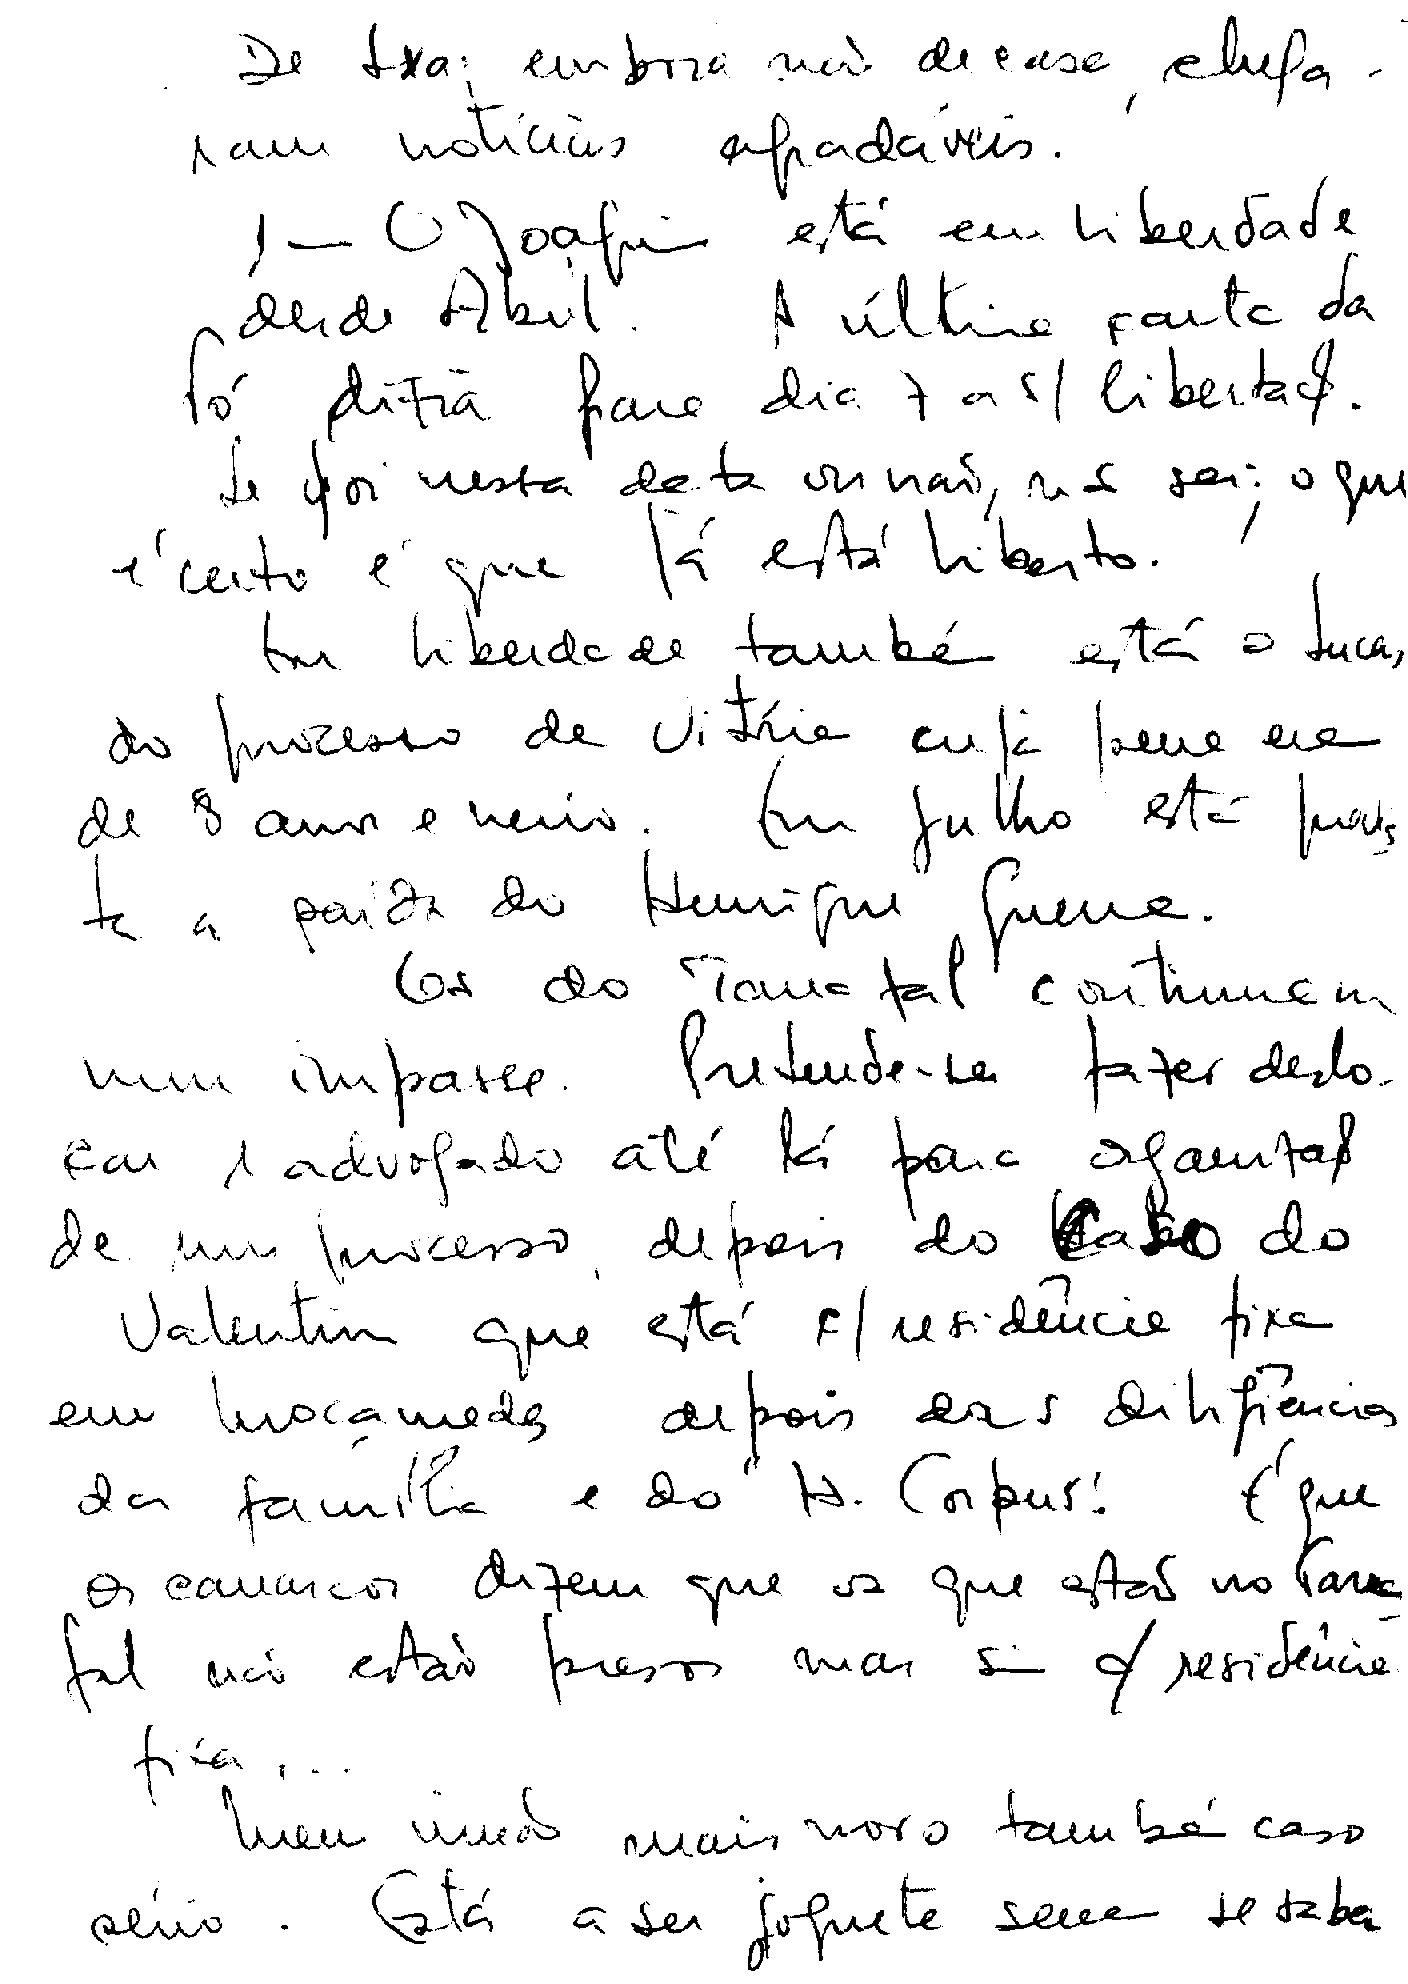 De Lxa, embora não de casa, chega-
ram notícias agradáveis.
1 — O Joaquim está em liberdade
desde Abril. A última carta da
Ió dizia para dia 7 a s/ libertaç.
Se foi nesta data ou não, não sei; o que
é certo é que já está liberto.
Em liberdade também está o Lucas,
do processo de Vitória cuja pena era
de 8 anos e meio. Em Julho está previs-
ta a saída do Henrique Guerra.
Os do Tarrafal continuam
num impasse. Pretende-se fazer deslo-
car 1 advogado até lá para organizaç
de um processo, depois do caso do
Valentim que está c/ residência fixa
em Moçâmedes depois das diligências
da família e do "H. Corpus". É que
os carrascos dizem que os que estão no Tarra-
fal não estão presos mas sim c/ residência
fixa...
Meu irmão mais novo também caso
sério. Está a ser joguete sem se saber